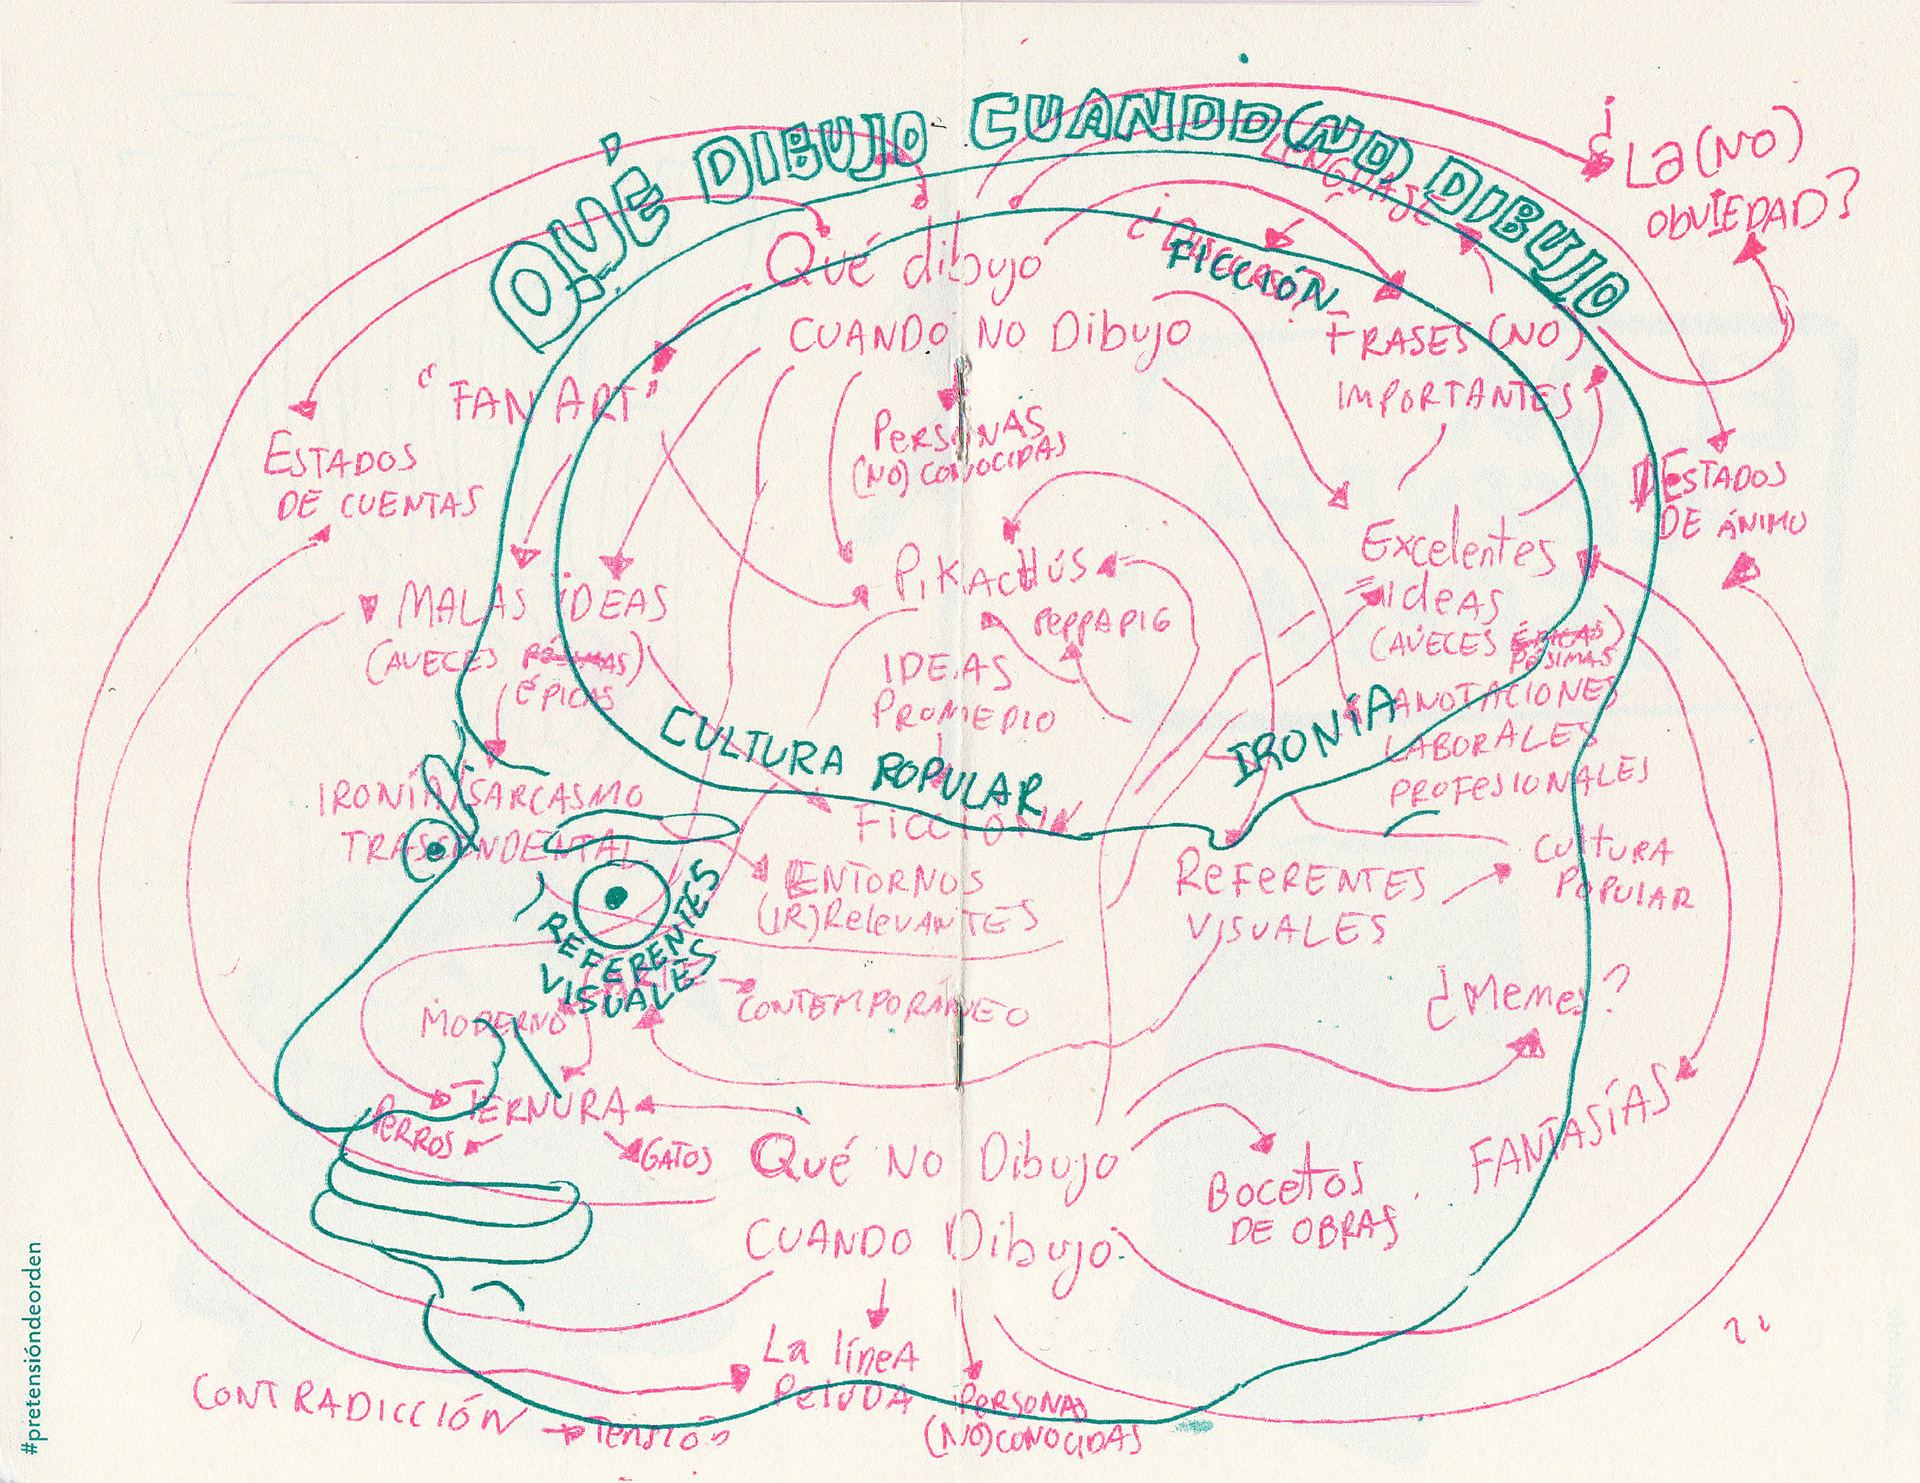 QUÉ DIBUJO CUANDO (NO) DIBUJO
¿La (NO)
OBVIEDAD?
LENGUAJE
Qué dibujo
CUANDO NO Dibujo
FICCIÓN
FRASES (NO)
IMPORTANTES
"FAN ART"
PERSONAS
(NO) CONOCIDAS
ESTADOS
DE CUENTAS
ESTADOS
DE ÁNIMO
PIKACHÚS
PEPPA PIG
Excelentes
IdeAS
(AVECES ÉPICAS)
PÉSIMAS
MALAS IDEAS
(AVECES PÉSIMAS)
ÉPICAS
IDEAS
PROMEDIO
ANOTACIONES
LABORALES
PROFESIONALES
CULTURA POPULAR
IRONÍA
IRONÍA/SARCASMO
TRASCENDENTAL
FICCIÓN
ENTORNOS
(IR)ReleVANTES
ReFERENTES
VISUALES
CULTURA
POPULAR
REFERENTES
VISUALES
ARTE
MODERNO
CONTEMPORÁNEO
¿MEMES?
TERNURA
PERROS
GATOS
Qué NO Dibujo
CUANDO Dibujo
BOCETOS
DE OBRAS
FANTASÍAS
La líneA
PELUDA
PERSONAS
(NO)CONOCIDAS
CONTRADICCIÓN
#pretensióndeorden